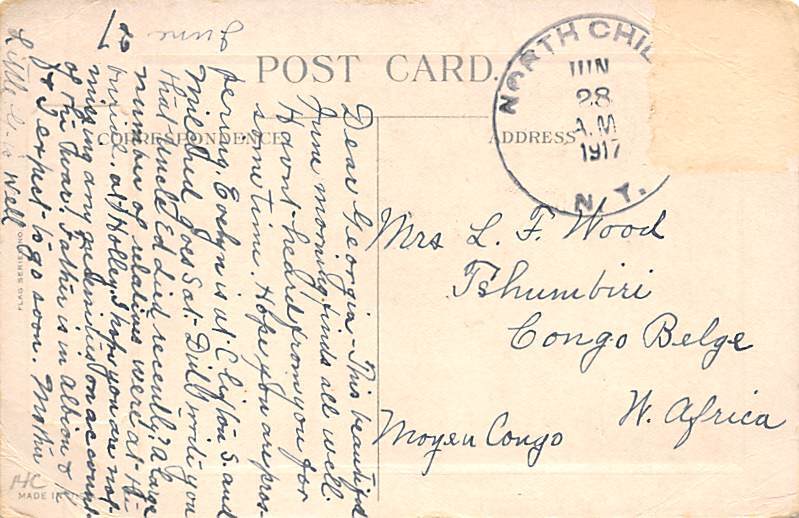 POST CARD.
CORRESPONDENCE
ADDRESS
NORTH CHIL
JUN
28
A.M.
1917
N.Y.
Mrs L. F. Wood
Tshumbiri
Congo Belge
W. Africa
Moyen Congo
Dear Georgia - This beautiful
June morning finds all well.
Havnt heard from you for
some time. Hope you are pros-
pering. Evelyn is at Clifton S. and
Mildred goes Sat. Did I write you
that Uncle Ed died recently? A large
number of relatives were at
at Holley. I hope you are not
missing any on account
of the War. Father is in Albion &
I expect to go soon. Mother
Little G. is Well
June
FLAG SERIES NO.
MADE IN